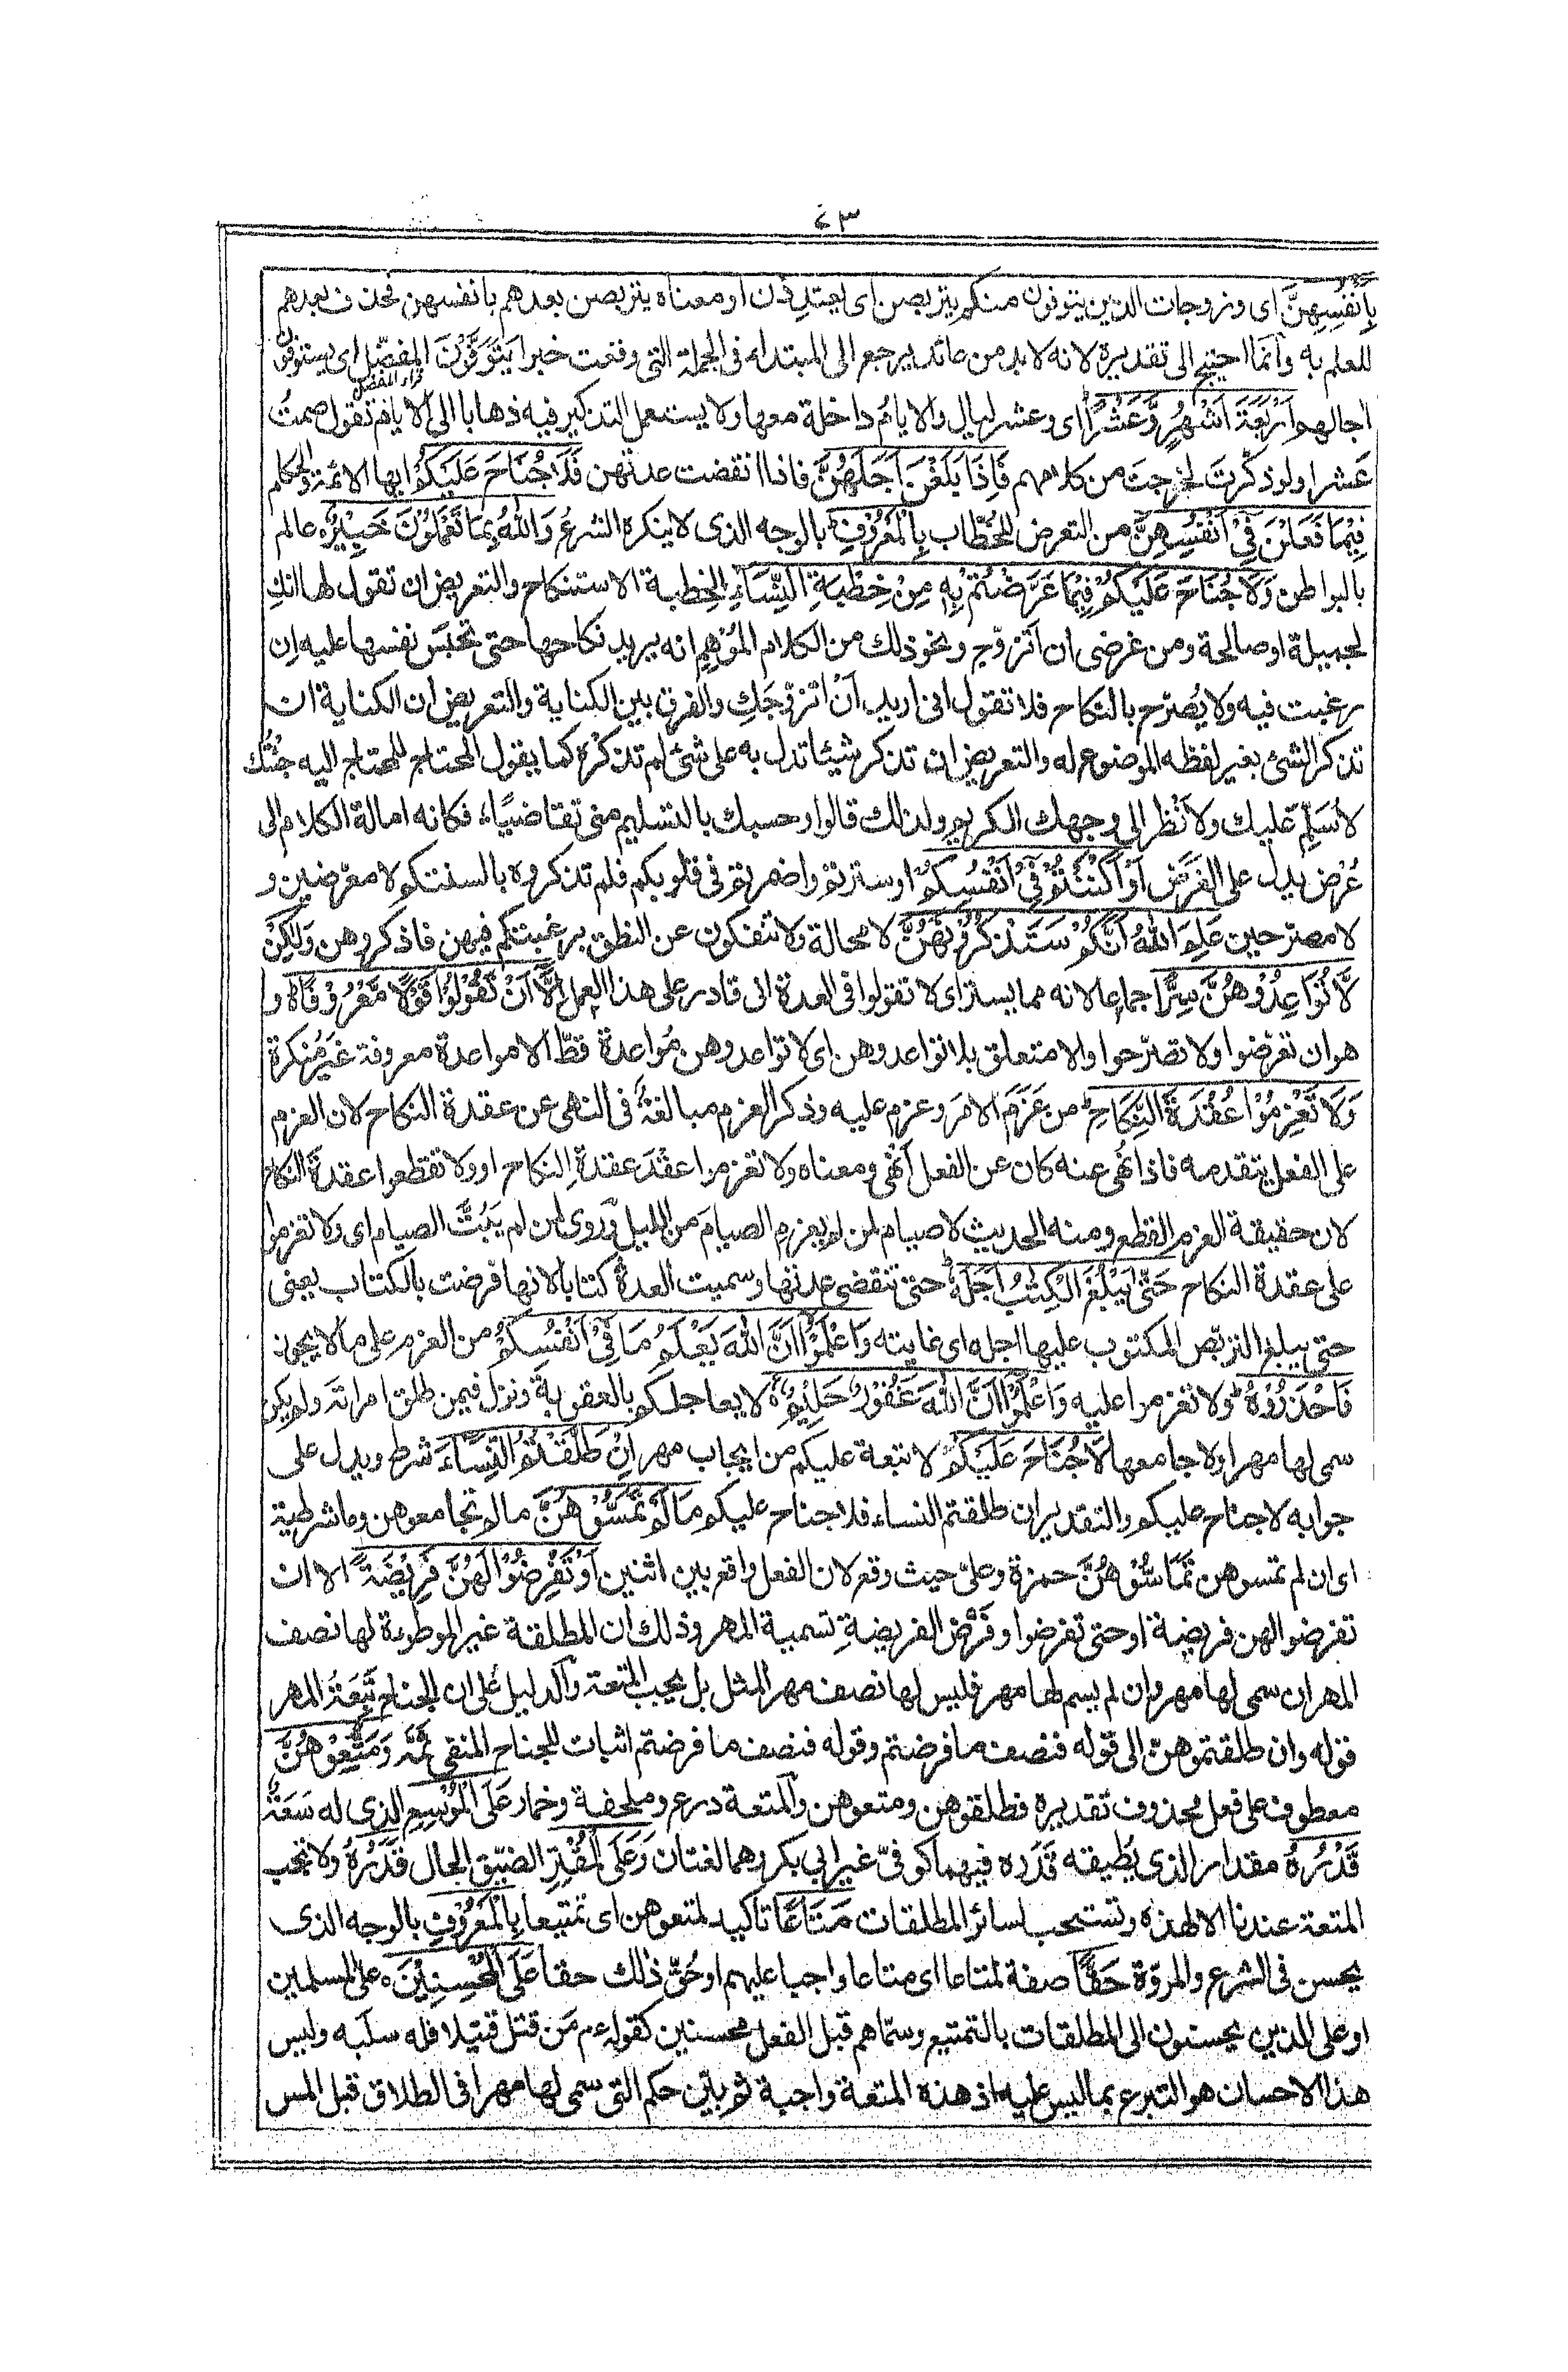 ٤٣
بِاَنْفُسِهِنَّ اى وزوجات الذين يتوفون منكم يتربصن اى يعتددن او معناه يتربصن بعدهم بانفسهن فحذف بعدهم
للعلم به وانما احتيج الى تقديره لانه لا بد من عائد يرجع الى المبتدا فى الجملة التى وقعت خبرا يَتَوَفَّوْنَ المفضّل اى يستوفون
اجالهم اَرْبَعَةَ اَشْهُرٍ وَّعَشْرًا اى وعشر ليال والايامُ داخلة معها ولا يستعمل التذكير فيه ذهابا الى الايام تقول صمتُ
عَشرا ولو ذكّرتَ لخرجتَ من كلامهم فَاِذَا بَلَغْنَ اَجَلَهُنَّ فاذا انقضت عدتهن فَلَا جُنَاحَ عَلَيْكُمْ ايها الائمة والحكام
فِيْمَا فَعَلْنَ فِيْ اَنْفُسِهِنَّ من التعرض للخُطّاب بِالْمَعْرُوْفِ بالوجه الذى لا ينكره الشرعُ وَاللّٰهُ بِمَا تَعْمَلُوْنَ خَبِيْرٌ عالم
بالبواطن وَلَا جُنَاحَ عَلَيْكُمْ فِيْمَا عَرَّضْتُمْ بِهٖ مِنْ خِطْبَةِ النِّسَاءِ الخطبة الاستنكاح والتعريض ان تقول لها انكِ
لجميلة او صالحة ومن غرضى ان اتزوّج ونحو ذلك من الكلام المُوْهِم انه يريد نكاحها حتى تحبَس نفسها عليه اِن
رغبت فيه ولا يُصرّح بالنكاح فلا تقول انى اريد اَنْ اتزوّجَكِ والفرق بين الكناية والتعريض ان الكناية ان
تذكر الشئ بغير لفظه الموضوع له والتعريض ان تذكر شيئا تدل به على شئ لم تذكرْه كما يقول المحتاج للمحتاج اليه جِئتُك
لاُسَلِّم عليك ولاَنْظر الى وجهك الكريم ولذلك قالوا وحسبك بالتسليم منى تقاضيًا؛ فكانه امالة الكلام الى
عُرْض يدل على الغرض اَوْ اَكْنَنْتُمْ فِيْ اَنْفُسِكُمْ او سترتم واضمرتم فى قلوبكم فلم تذكروه بالسنتكم لا معرّضين و
لا مصرّحين عَلِمَ اللّٰهُ اَنَّكُمْ سَتَذْكُرُوْنَهُنَّ لا محالة ولا تنفكون عن النطق برغبتكم فيهن فاذكروهن وَلٰكِنْ
لَّا تُوَاعِدُوْهُنَّ سِرًّا جماعا لانه مما يسرّ اى لا تقولوا فى العدة انى قادر على هذا العمل اِلَّا اَنْ تَقُوْلُوْا قَوْلًا مَّعْرُوْفًا و
هو ان تعرّضوا ولا تصرّحوا والا متعلق بلا تواعدوهن اى لا تواعدوهن مُواعدة قطّ الا مواعدة معروفة غيرَ مُنكرة
وَلَا تَعْزِمُوْا عُقْدَةَ النِّكَاحِ من عَزَمَ الامرَ وعزم عليه وذكر العزم مبالغةً فى النهى عن عقدة النكاح لان العزم
على الفعل يتقدمه فاذا نُهى عنه كان عن الفعل اَنْهى ومعناه ولا تعزموا عَقْدَ عقدةِ النكاح او ولا تقطعوا عقدةَ النكاح
لان حقيقة العزم القطع ومنه الحديث لا صيام لمن لم يعزم الصيامَ من الليل ورُوى لمن لم يَبُتَّ الصيام اى ولا تعزموا
على عقدة النكاح حَتّٰى يَبْلُغَ الْكِتٰبُ اَجَلَهٗ حتى تنقضى عدتها وسميت العدة كتابا لانها فرضت بالكتاب يعنى
حتى يبلغ التربّص المكتوب عليها اجله اى غايته وَاعْلَمُوْا اَنَّ اللّٰهَ يَعْلَمُ مَا فِيْ اَنْفُسِكُمْ من العزم على ما لا يجوز
فَاحْذَرُوْهُ ولا تعزموا عليه وَاعْلَمُوْا اَنَّ اللّٰهَ غَفُوْرٌ حَلِيْمٌ لا يعاجلكم بالعقوبة ونزل فيمن طلق امراته ولم يكن
سمى لها مهرا ولا جامعها لَا جُنَاحَ عَلَيْكُمْ لا تبعة عليكم من ايجاب مهر اِنْ طَلَّقْتُمُ النِّسَاءَ شرط ويدل على
جوابه لا جناح عليكم والتقدير ان طلقتم النساء فلا جناح عليكم مَا لَمْ تَمَسُّوْهُنَّ ما لم تجامعوهن وما شرطية
اى ان لم تمسوهن تُمَاسُّوْهُنَّ حمزة وعلىّ حيث وقع لان الفعل واقع بين اثنين اَوْ تَفْرِضُوْا لَهُنَّ فَرِيْضَةً الا ان
تفرضوا لهن فريضة او حتى تفرضوا وفَرْضُ الفريضةِ تسمية المهر وذلك ان المطلقة غير الموطوءة لها نصف
المهر ان سمى لها مهر وان لم يسم لها مهر فليس لها نصف مهر المثل بل يجب المتعة والدليل على ان الجناح تَبِعَةُ المهر
قوله وان طلقتموهن الى قوله فنصف ما فرضتم وقوله فنصف ما فرضتم اثبات للجناح المنفى ثَمَّه وَمَتِّعُوْهُنَّ
معطوف على فعل محذوف تقديره فطلقوهن ومتعوهن والمتعة درع وملحفة وخمار عَلَى الْمُوْسِعِ الذى له سَعَةٌ
قَدْرُهٗ مقدار الذى يُطيقه قَدَره فيهما كوفىّ غير ابى بكر وهما لغتان وَعَلَى الْمُقْتِرِ الضيّق الحال قَدْرُهٗ ولا تجب
المتعة عندنا الا لهذه وتستحب لسائر المطلقات مَتَاعًا تاكيد لمتعوهن اى تمتيعا بِالْمَعْرُوْفِ بالوجه الذى
يحسن فى الشرع والمروّة حَقًّا صفة لمتاعا اى متاعا واجبا عليهم او حُقَّ ذلك حقا عَلَى الْمُحْسِنِيْنَ على المسلمين
او على الذين يحسنون الى المطلقات بالتمتيع وسمّاهم قبل الفعل محسنين كقولهء م مَن قتل قتيلا فله سلَبه وليس
هذا الاحسان هو التبرع بما ليس عليه اذ هذه المتعة واجبة ثم بيّن حكم التى سمى لها مهرا فى الطلاق قبل المس